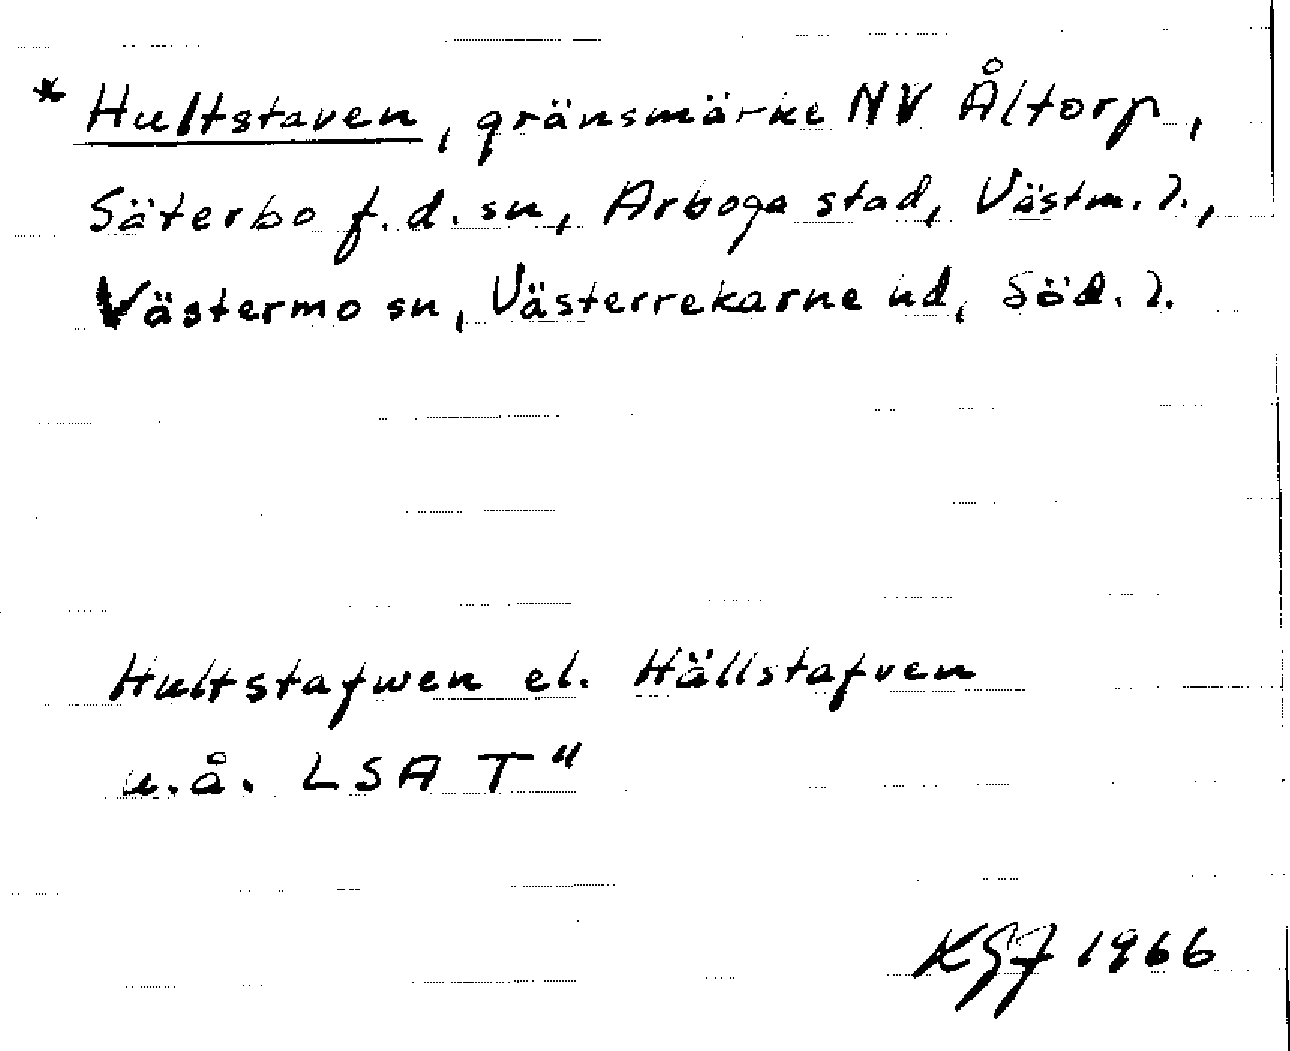 * Hultstaven, gränsmärke NV Åltorp,
Säterbo f.d. sn, Arboga stad, Västm. l.,
Västermo sn, Västerrekarne hd, Söd. l.
Hultstafwen el. Hällstafven
u.å. LSA T"
KGJ 1966